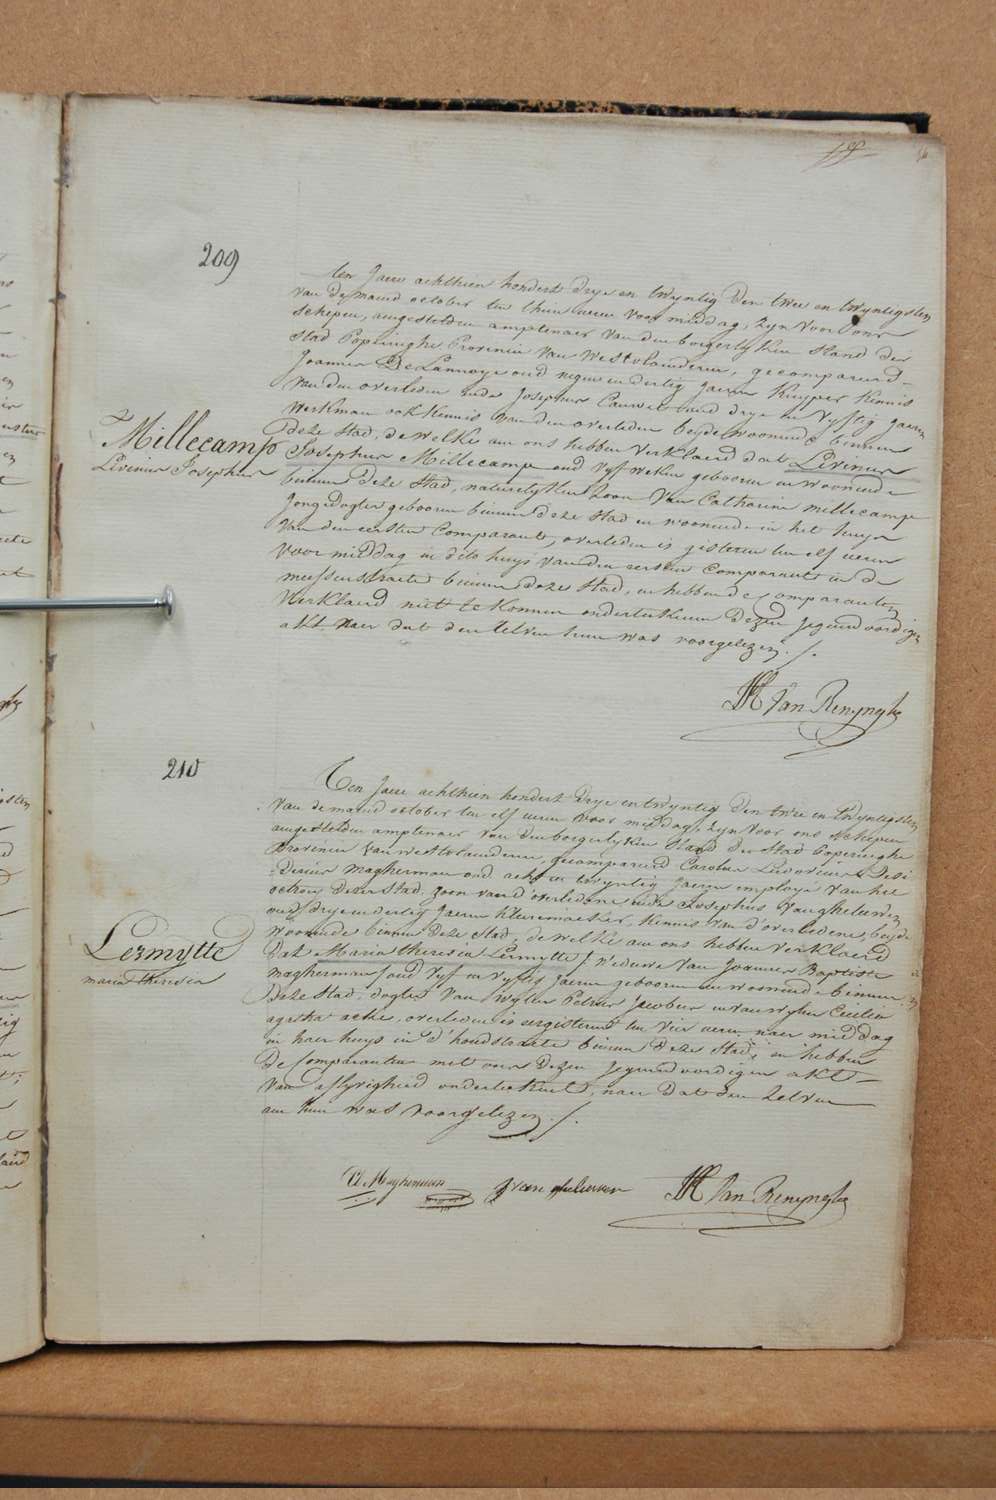 209
Ten Jaere achthien hondert drye en twyntig den twee en twyntigsten
van de maend october ten thien ueren voor middag, zyn voor ons
schepen, aengestelden amptenaer van den borgerlyken stand der
stad Poperinghe Provincie van Westvlaenderen, gecompareerd
Joannes De Lannoye oud negen en dertig Jaeren Kuyper Kennis
van den overleden ende Josephus Cauwel oud drye en vyftig Jaeren
Werkman ook Kennis van den overleden beyde woonende binnen
deze stad, de welke aen ons hebben verklaerd dat Livinus
Millecamp
Livinus Josephus
Josephus Millecamp oud vyf weken geboren en woonende
binnen deze stad, naturelyken zoon van Catharina millecamp
Jongedogter geboren binnen deze stad en woonende in het huys
van den eersten Comparant, overleden is gisteren ten elf ueren
voor middag in d'elo huys van den eersten Comparant in de
meessenstraete binnen deze stad, en hebben de comparanten
verklaerd niet te konnen onderteekenen dezen jegenwoordigen
akt naer dat den zelven hun was voorgelezen ./.
Van Renynghe
210
Ten Jaere achthien hondert drye en twyntig den twee en twyntigsten
van de maend october ten elf ueren voor middag, zyn voor ons schepen
aengestelden amptenaer van den borgerlyken stand der stad Poperinghe
Provincie van westvlaenderen, gecompareerd Carolus Ludovicus Desi
=derius magherman oud acht en twyntig Jaeren employé van het
octroy dezer stad, zoon van d'overledene ende Josephus Vangheluwen
oud drye en dertig Jaeren Kleermaeker, kennis van d'overledene, beyde
woonende binnen deze stad, de welke aen ons hebben verklaerd
Lermytte
maria Theresia
dat Maria theresia Lermytte, weduwe van Joannes Baptiste
magherman oud vyf en vyftig Jaeren geboren en woonende binnen
deze stad, dogter van wylen Petrus Jacobus en van wylen Cecilia
agatha acke, overleden is eergisteren ten vier ueren naer middag
in haer huys in d'hondstraete binnen deze stad, en hebben
de Comparanten met ons dezen jegenwoordigen akt
van eflyvigheid onderteekent, naer dat den zelven
aen hun was voorgelezen ./.
Cl Magherman J van gheluwen Van Renynghe